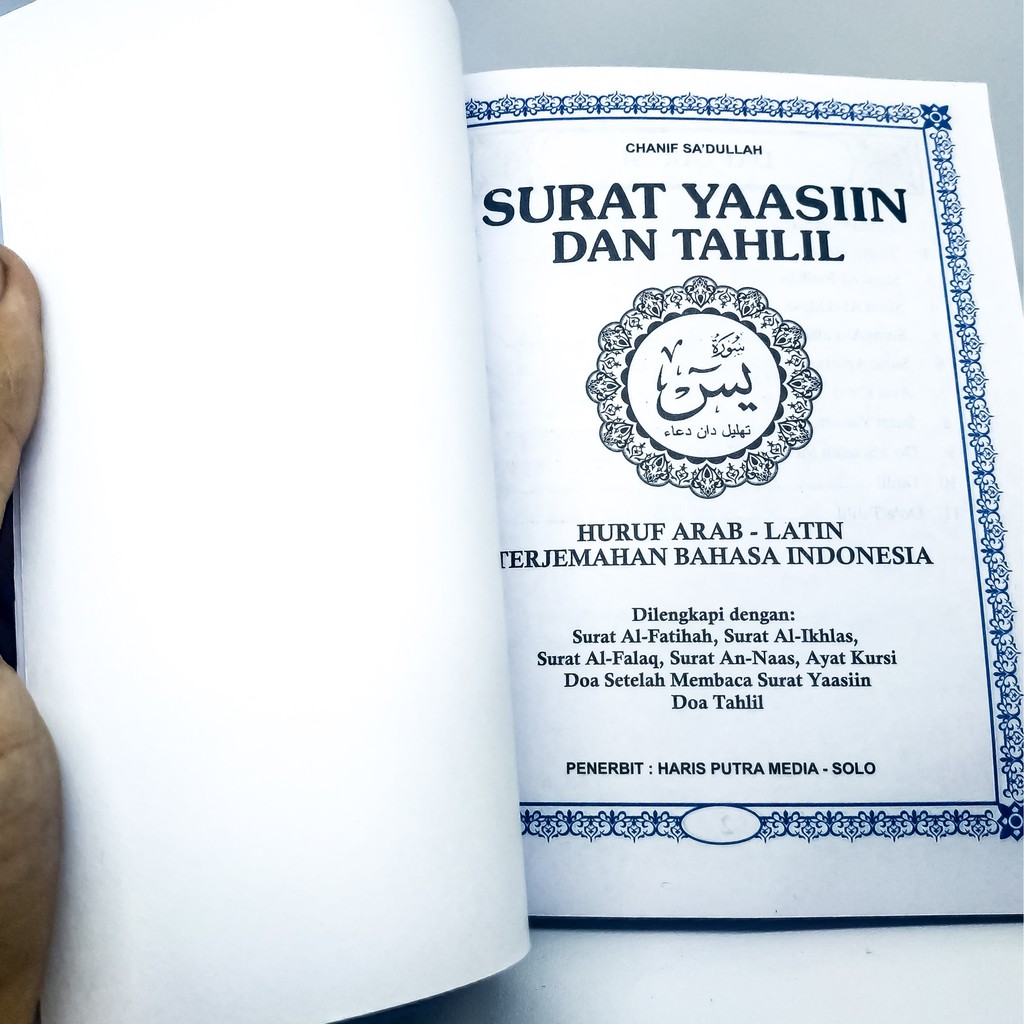 CHANIF SA'DULLAH
SURAT YAASIIN
DAN TAHLIL
سُورَة
يٰسٓ
تهليل دان دعاء
HURUF ARAB - LATIN
TERJEMAHAN BAHASA INDONESIA
Dilengkapi dengan:
Surat Al-Fatihah, Surat Al-Ikhlas,
Surat Al-Falaq, Surat An-Naas, Ayat Kursi
Doa Setelah Membaca Surat Yaasiin
Doa Tahlil
PENERBIT : HARIS PUTRA MEDIA - SOLO